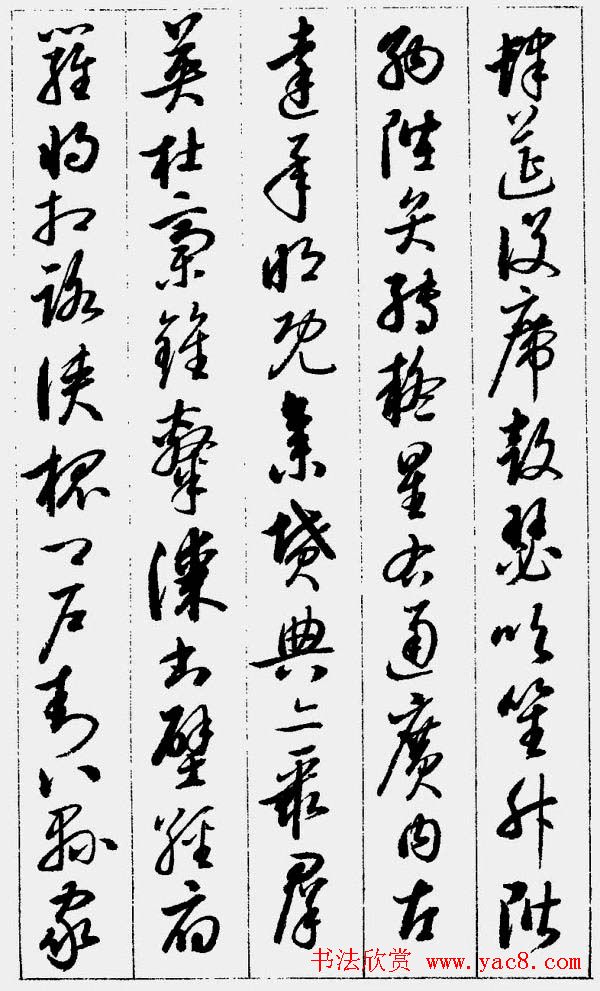 肆筵設席鼓瑟吹笙升階
納陛弁轉疑星右通廣內左
達承明既集墳典亦聚群
英杜稾鍾隸漆書壁經府
羅將相路俠槐卿戶封八縣家
书法欣赏 www.yac8.com